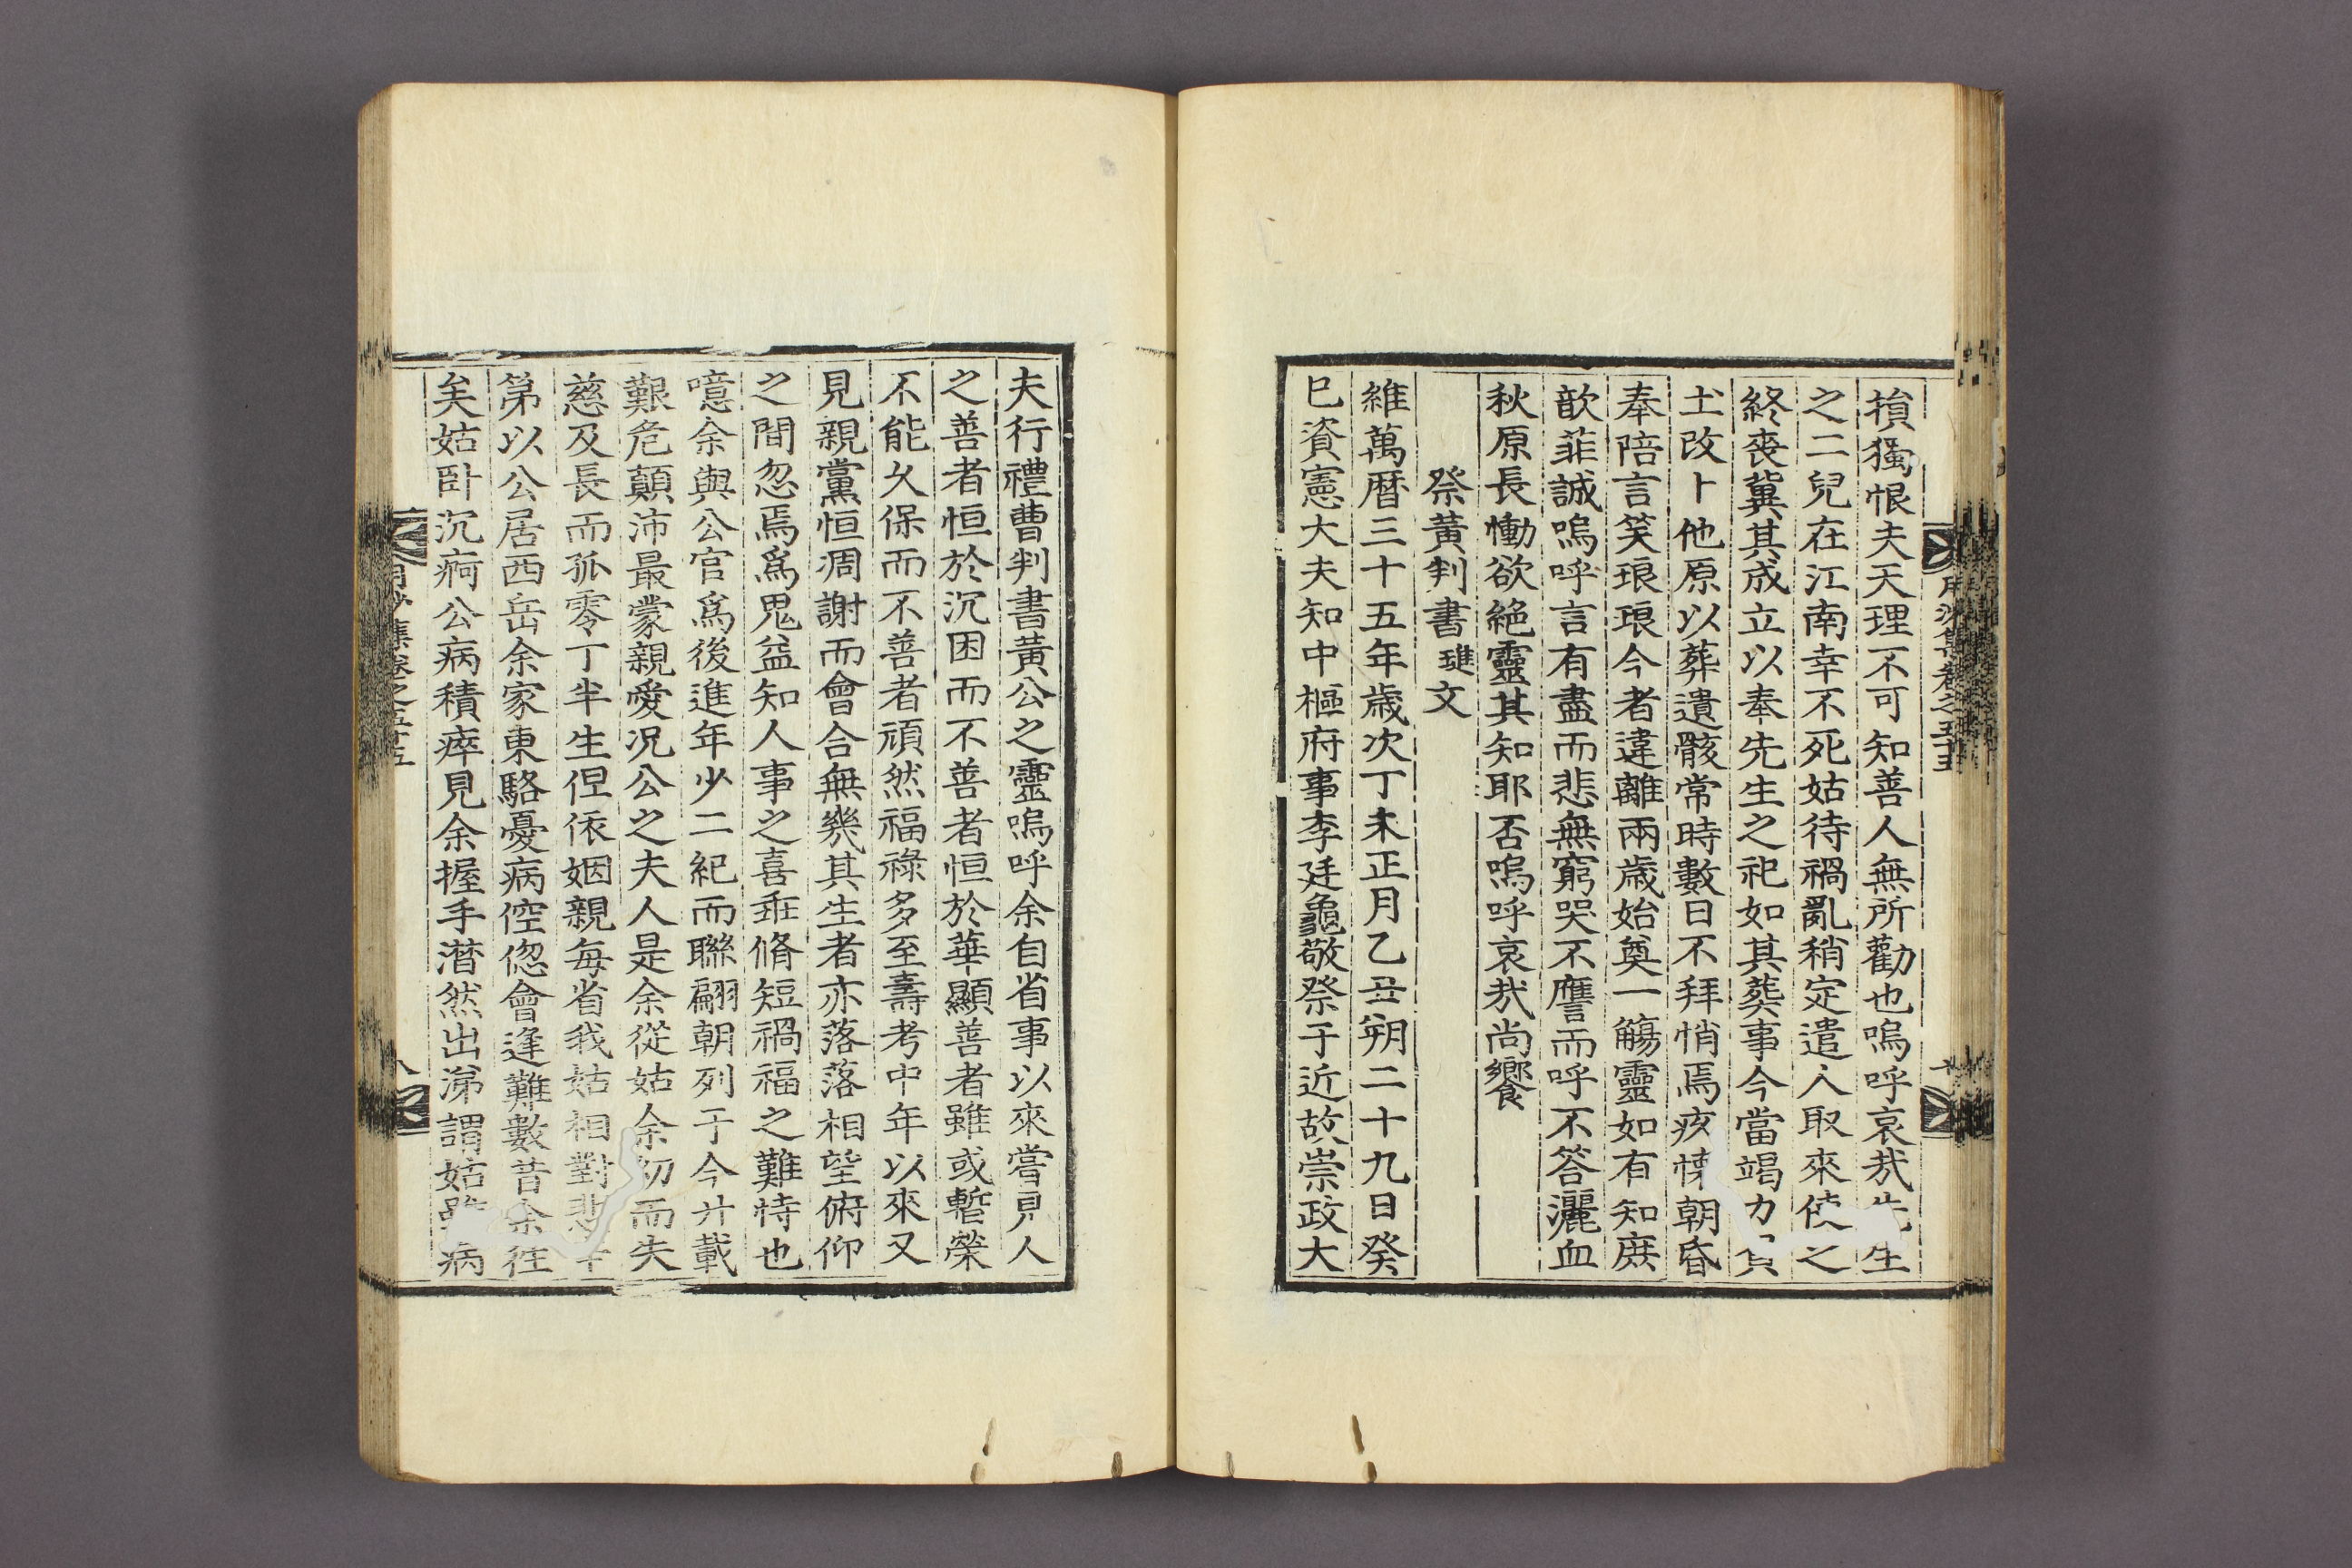 損獨恨夫天理不可知善人無所勸也嗚呼哀哉先生
之二兒在江南幸不死姑待禍亂稍定遣人取來使之
終喪冀其成立以奉先生之祀如其葬事今當竭力負
土改卜他原以葬遺骸常時數日不拜悄焉疚懷朝昏
奉陪言笑琅琅今者違離兩歲始奠一觴靈如有知庶
歆菲誠嗚呼言有盡而悲無窮哭不譍而呼不答灑血
秋原長慟欲絶靈其知耶否嗚呼哀哉尚饗
祭黃判書璡文
維萬曆三十五年歲次丁未正月乙丑朔二十九日癸
巳資憲大夫知中樞府事李廷龜敬祭于近故崇政大
夫行禮曹判書黃公之靈嗚呼余自省事以來嘗見人
之善者恒於沉困而不善者恒於華顯善者雖或暫榮
不能久保而不善者頑然福祿多至壽考中年以來又
見親黨恒凋謝而會合無幾其生者亦落落相望俯仰
之間忽焉爲鬼益知人事之喜乖脩短禍福之難恃也
噫余與公官爲後進年少二紀而聯翩朝列于今廾載
艱危顛沛最蒙親愛况公之夫人是余從姑余幼而失
慈及長而孤零丁半生但依姻親每省我姑相對悲辛
第以公居西岳余家東駱憂病倥偬會逢難數昔余往
矣姑卧沉痾公病積瘁見余握手潸然出涕謂姑雖病
月沙集卷之五十五
八